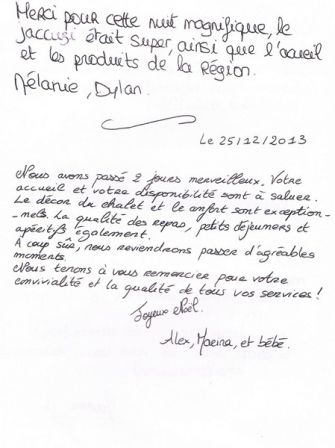 Merci pour cette nuit magnifique, le
jaccusi était super, ainsi que l'accueil
et les produits de la Région.
Mélanie, Dylan.
Le 25/12/2013
Nous avons passé 2 jours merveilleux. Votre
accueil et votre disponibilité sont à saluer.
Le décor du chalet et le confort sont exception-
-nels. La qualité des repas, petits déjeuners et
apéritifs également.
A coup sûr, nous reviendrons passer d'agréables
moments.
Nous tenons à vous remercier pour votre
convivialité et la qualité de tous vos services !
Joyeux Noël.
Alex, et bébé.